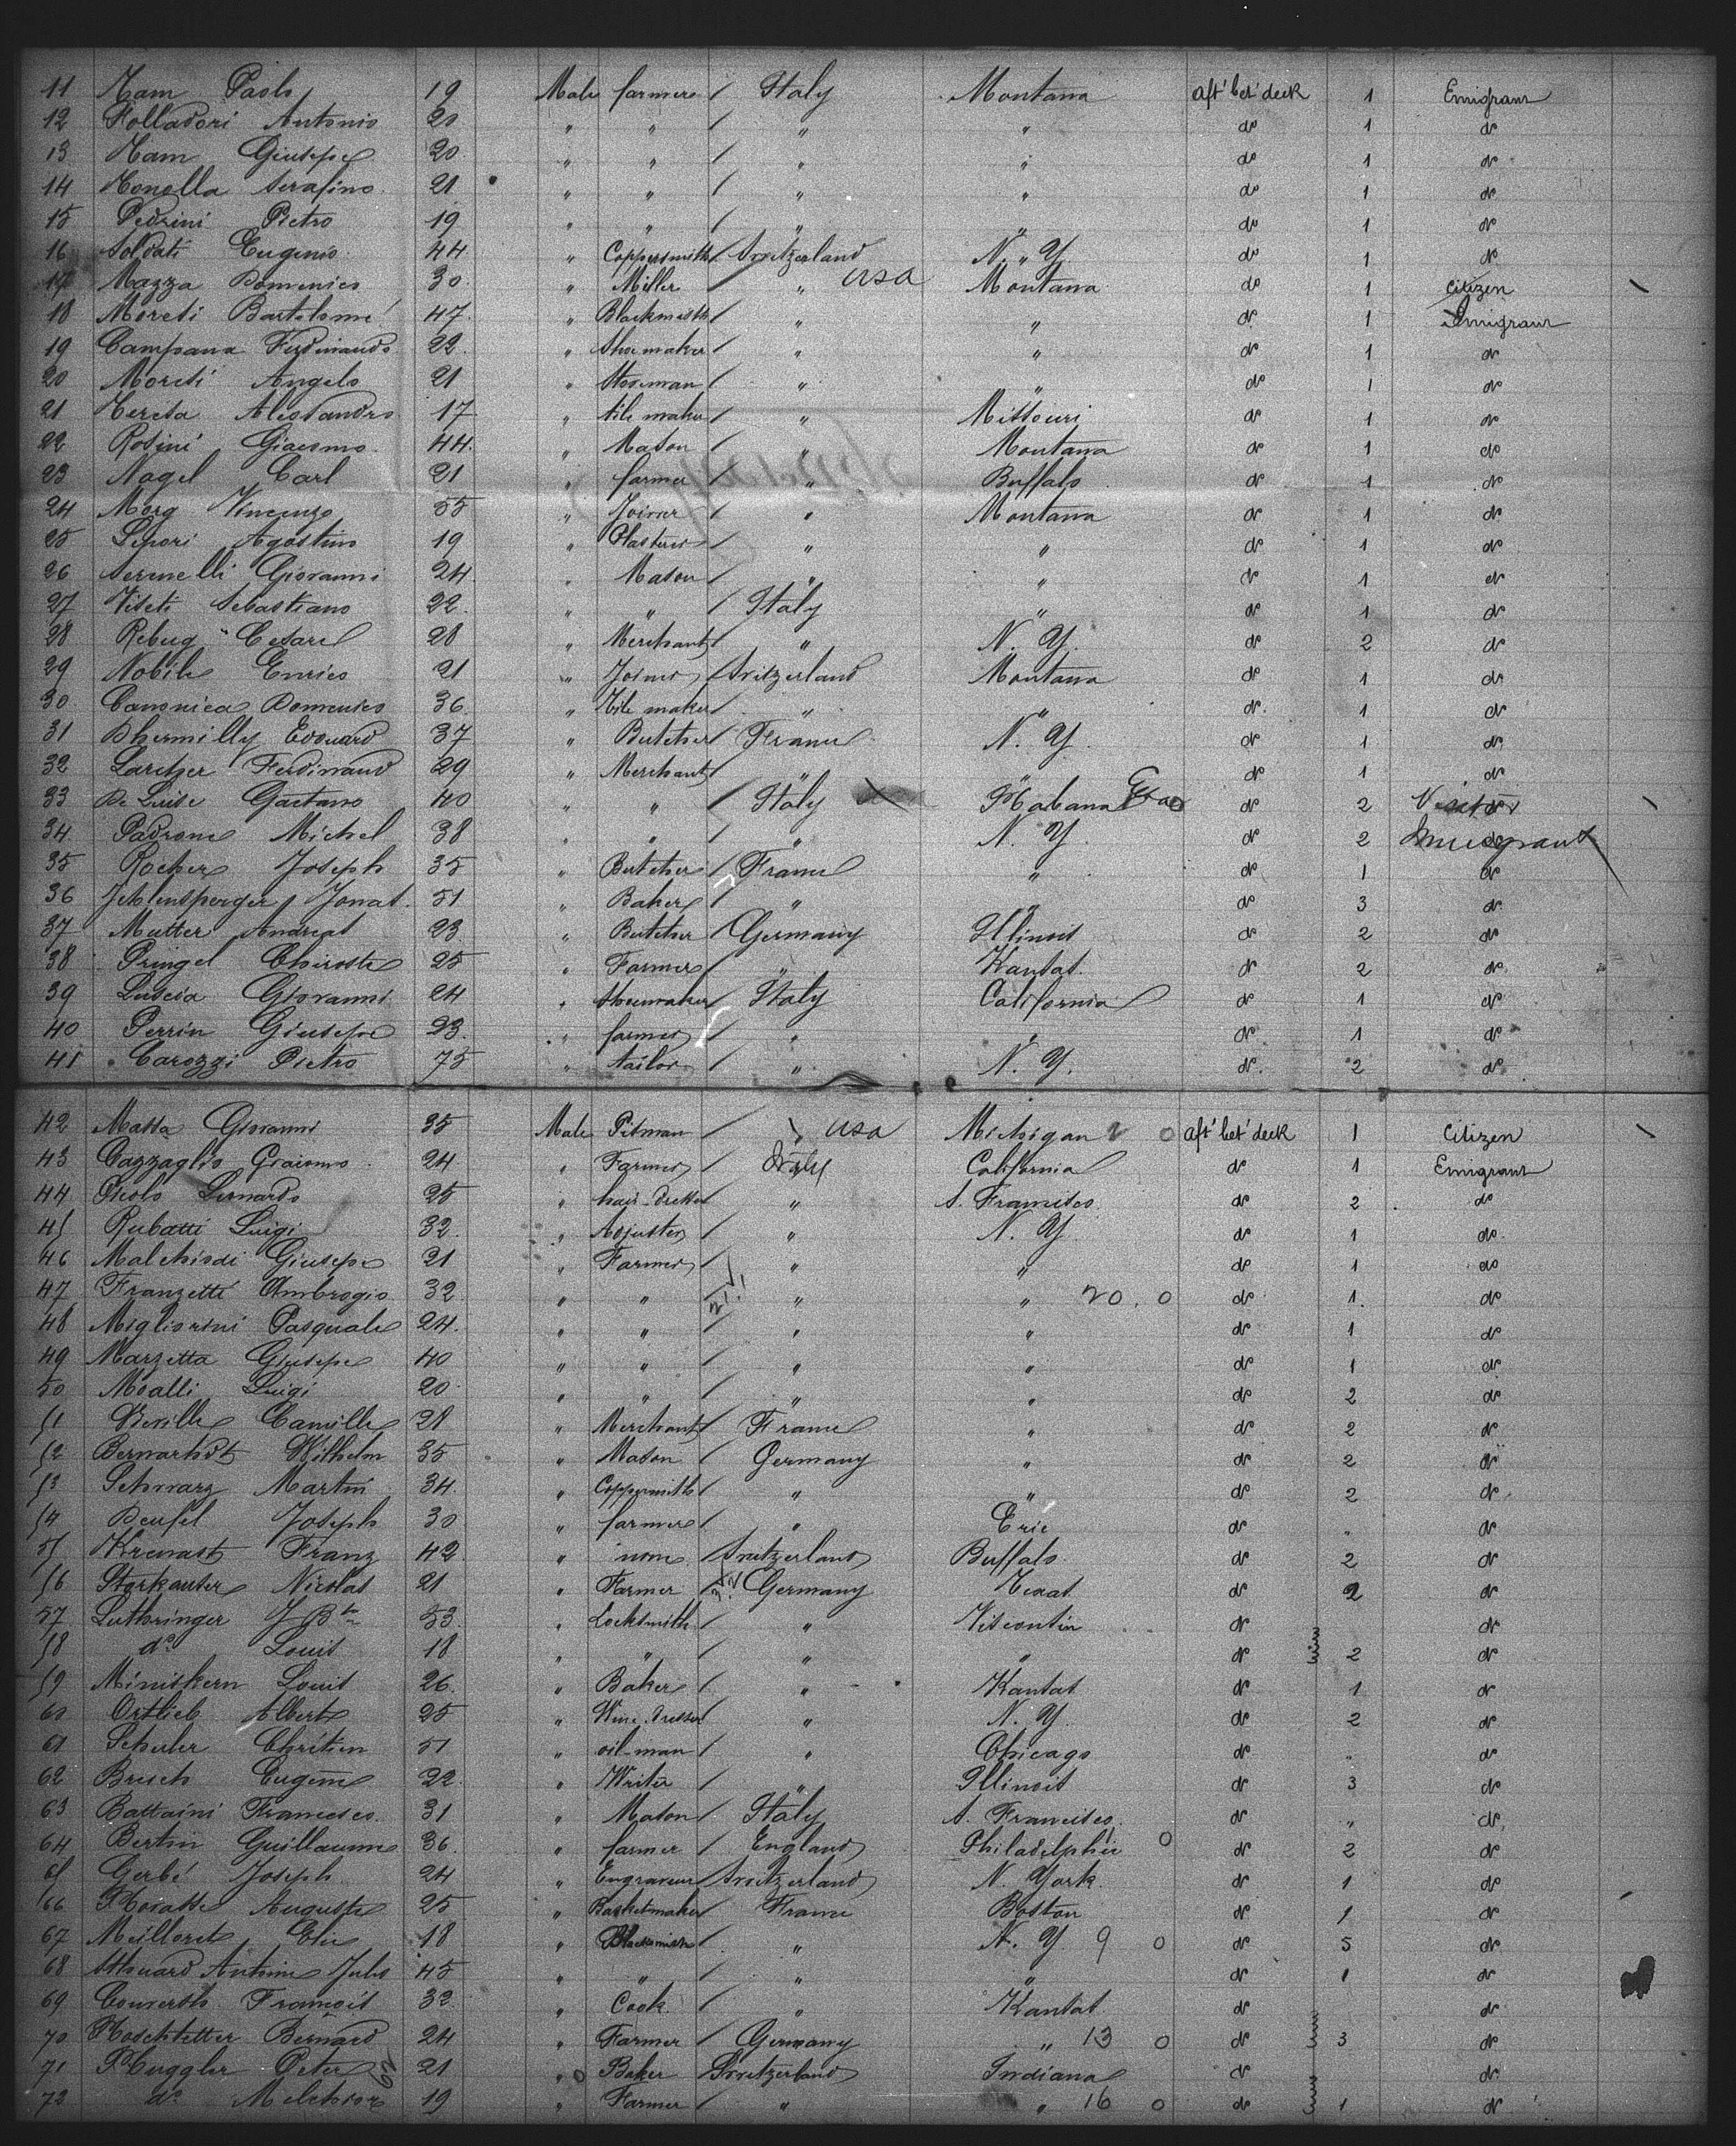 11 Zam Paolo 19 Male farmer / Italy Montana aft' bet' deck 1 Emigrant
12 Folladori Antonio 20 " " / " " do 1 do
13 Zam Giuseppe 20 " " / " " do 1 do
14 Zonolla Serafino 21 " " / " " do 1 do
15 Pedrini Pietro 19 " " / " " do 1 do
16 Soldati Eugenio 44 " Coppersmith / Switzerland N. Y. do 1 do
17 Mazza Domenico 30 " Miller / " USA Montana do 1 Citizen
18 Moreti Bartolomé 47 " Blacksmith / " " do 1 Emigrant
19 Campana Ferdinando 22 " Shoemaker / " " do 1 do
20 Moreti Angelo 21 " Stoneman / " " do 1 do
21 Alessandro 17 " tile maker / " Missouri do 1 do
22 Rosini Giacomo 44 " Mason / " Montana do 1 do
23 Nagel Carl 21 " farmer / " Buffalo do 1 do
24 Morg Vincenzo 55 " Joiner / " Montana do 1 do
25 Lepori Agostino 19 " Plasterer / " " do 1 do
26 Giovanni 24 " Mason / " " do 1 do
27 Viseti Sebastiano 22 " " / Italy " do 1 do
28 Rebug Cesare 28 " Merchant / " N. Y. do 2 do
29 Nobile Enrico 21 " Joiner / Switzerland Montana do 1 do
30 Canonica Domenico 36 " Tile maker / " " do 1 do
31 Dhermilly Edouard 37 " Butcher / France N. Y. do 1 do
32 Ferdinand 29 " Merchant / " " do 1 do
33 De Luise Gaetano 40 " " / Italy Habana do 2 Visitor
34 Padrone Michel 38 " " / " N. Y. do 2 Immigrant
35 Rocher Joseph 35 " Butcher / France " do 1 do
36 Jehlensperger Jonas 51 " Baker / " " do 3 do
37 Mutter Andreas 23 " Butcher / Germany Illinois do 2 do
38 Pringel 25 " Farmer / " Kansas do 2 do
39 Luscia Giovanni 24 " Shoemaker / Italy California do 1 do
40 Perrin Giuseppe 23 " farmer / " " do 1 do
41 Carozzi Pietro 75 " tailor / " N. Y. do 2 do
42 Massa Giovanni 35 Male Pitman / USA Michigan 2 0 aft' bet' deck 1 Citizen
43 Cazzaglio Giacomo 24 " Farmer / Italy California do 1 Emigrant
44 Picolo Leonardo 25 " hair-dresser " S. Francisco do 2 do
45 Rubatti Luigi 32 " Adjuster / " N. Y. do 1 do
46 Malchiodi Giuseppe 21 " Farmer / " " do 1 do
47 Franzetti Ambrogio 32 " " " " 20. 0 do 1 do
48 Migliorini Pasquale 24 " " / " " do 1 do
49 Marzetta Giuseppe 40 " " / " " do 1 do
50 Moalli Luigi 20 " " / " " do 2 do
51 Camille 28 " Merchant / France " do 2 do
52 Bernardt Wilhelm 35 " Mason / Germany " do 2 do
53 Schwarz Martin 34 " Coppersmith / " " do 2 do
54 Deufel Joseph 30 " farmer / " Erie do " do
55 Franz 42 " none Switzerland Buffalo do 2 do
56 Nicolas 21 " Farmer Germany Texas do 2 do
57 Luthringer J Bte 53 " Locksmith / " Visconsin do do
58 do Louis 18 " " / " " do 2 do
59 Miniskern Louis 26 " Baker / " Kansas do 1 do
60 Ortlieb Albert 25 " Wine-dresser " N. Y. do 2 do
61 Schuler Chrétien 51 " oil-man / " Chicago do " do
62 Bresch Eugène 22 " Writer / " Illinois do 3 do
63 Battaini Francesco 31 " Mason / Italy S. Francisco do " do
64 Bertin Guillaume 36 " farmer / England Philadelphie 0 do 2 do
65 Gerbé Joseph 24 " Engraveur / Switzerland N. York do 1 do
66 Auguste 25 " Basketmaker / France Boston do 1 do
67 Meilloret Elie 18 " Blacksmith / " N. Y. 9 0 do 5 do
68 Antoine Jules 45 " " / " " do 1 do
69 François 32 " Cook / " Kansas do do
70 Hoschtetter Bernard 24 " Farmer / Germany " 13 0 do 3 do
71 Huggler Peter 21 " Baker Switzerland Indiana do do
72 do Melchior 19 " Farmer / " " 16 0 do 1 do